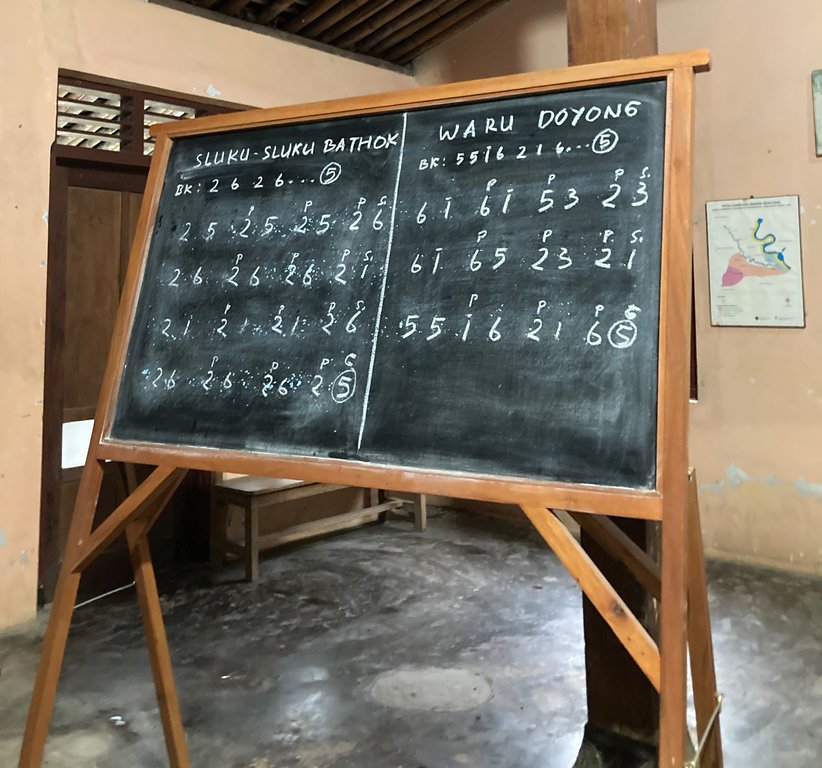 SLUKU-SLUKU BATHOK
BK: 2 6 2 6... ⑤
P P P S.
2 5 2 5 2 5 2 6
P P P S.
2 6 2 6 2 6 2 1
P P P S
2 1 2 1 2 1 2 6
P P P G
2 6 2 6 2 6 2 ⑤
WARU DOYONG
BK: 5 5 1̇ 6 2 1 6... ⑤
P P P S.
6 1̇ 6 1̇ 5 3 2 3
P P P S.
6 1̇ 6 5 2 3 2 1
P P P G
5 5 1̇ 6 2 1 6 ⑤